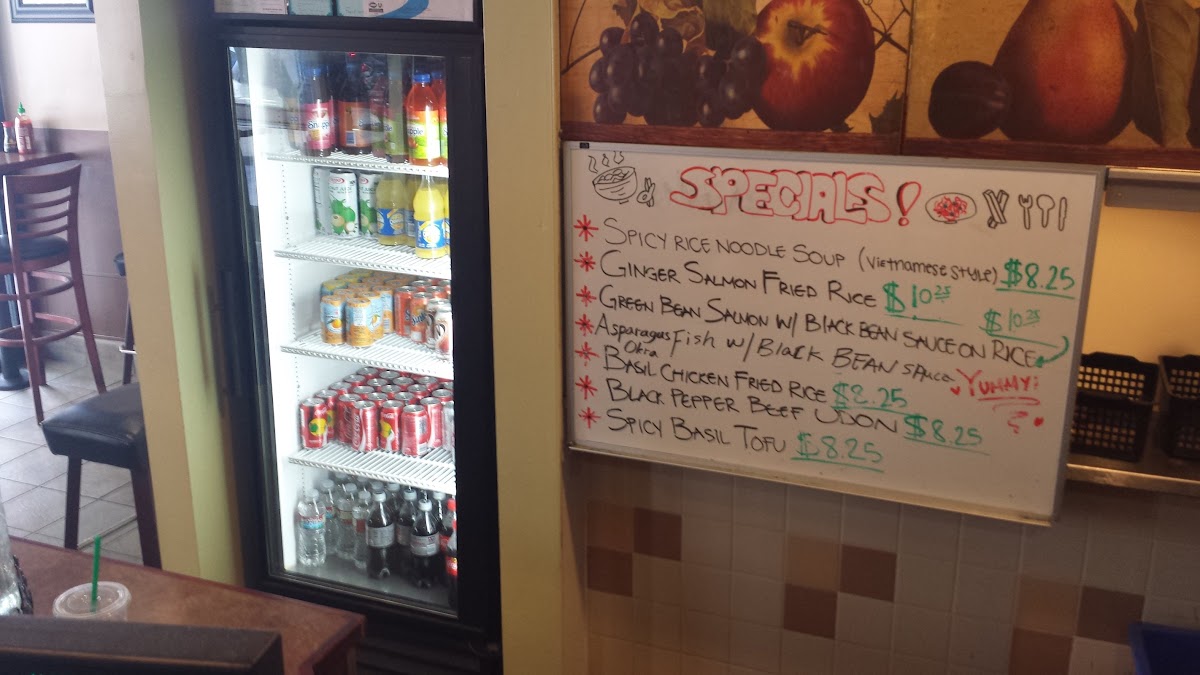 SPECIALS!
SPICY RICE NOODLE SOUP (VIETNAMESE STYLE) $8.25
GINGER SALMON FRIED RICE $10.25
$10.25
GREEN BEAN SALMON W/ BLACK BEAN SAUCE ON RICE
Asparagus Fish W/ BLACK BEAN SAUCE YUMMY!
Okra
BASIL CHICKEN FRIED RICE $8.25
BLACK PEPPER BEEF UDON $8.25
SPICY BASIL TOFU $8.25